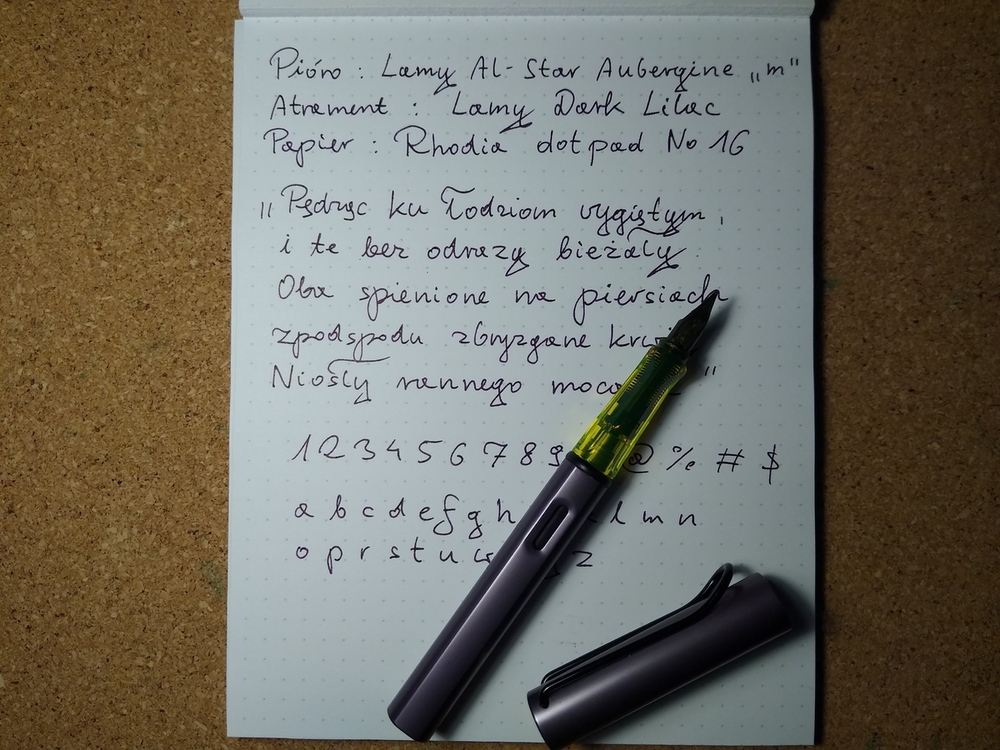 Pióro : Lamy Al-Star Aubergine „m"
Atrament : Lamy Dark Lilac
Papier : Rhodia dotpad No 16
„Pędząc ku Łodziom wygiętym,
i te bez odrazy bieżały.
Oba spienione na piersiach
zpodspodu zbryzgane
Niosły rannego "
1 2 3 4 5 6 7 8 9 @ % # $
a b c d e f g h l m n
o p r s t u z